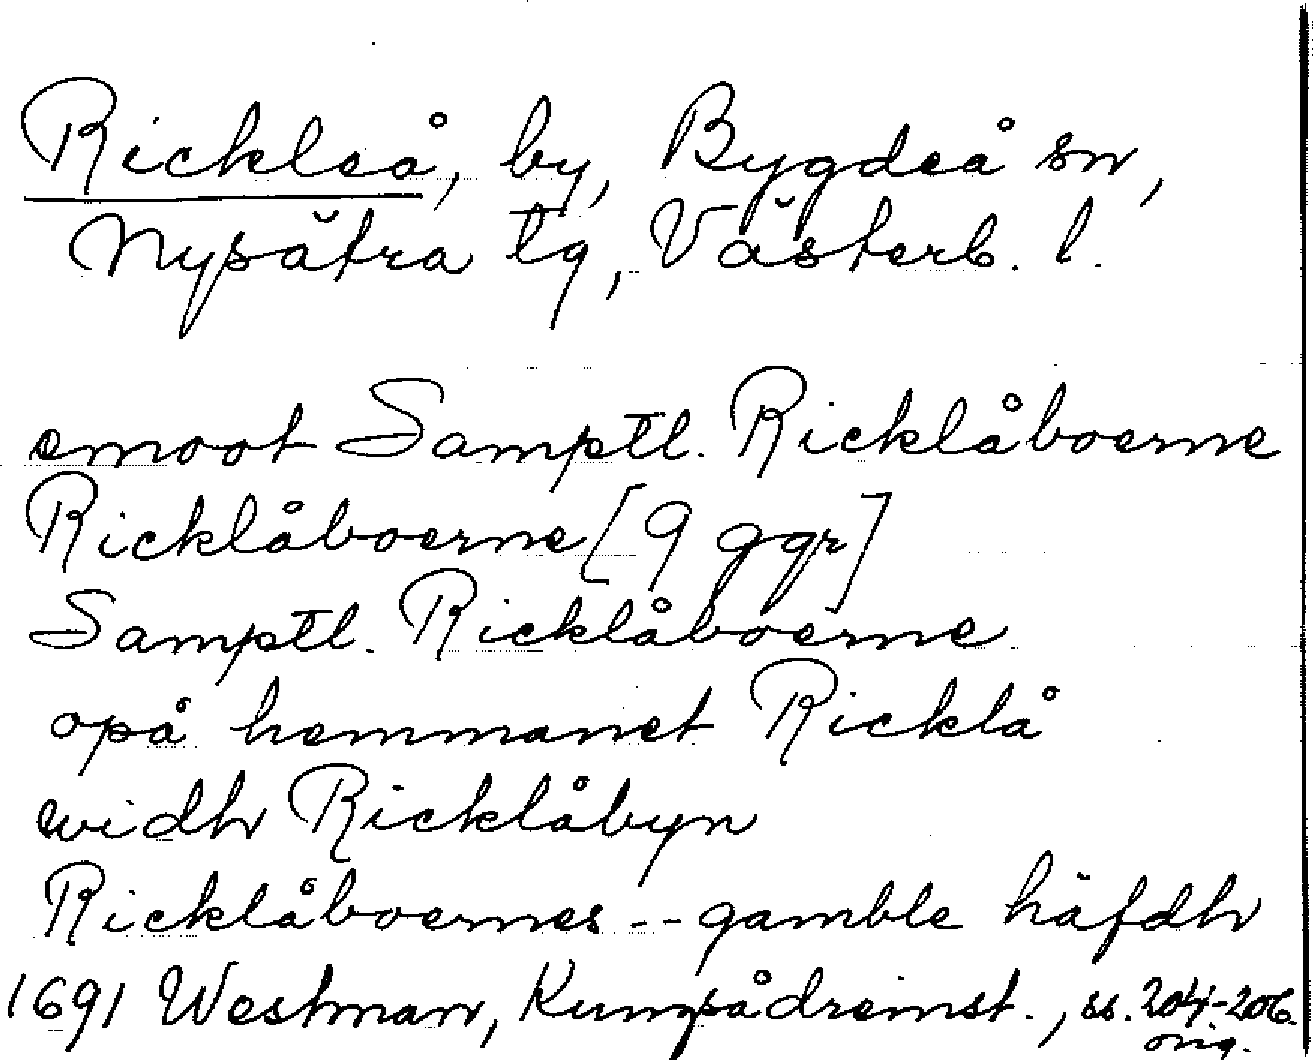 Rickleå, by, Bygdeå sn,
Nysätra tg, Västerb. l.
emoot Samptl. Ricklåboerne
Ricklåboerne [9 ggr]
Samptl. Ricklåboerne
opå hemmanet Ricklå
widh Ricklåbyn
Ricklåboernes -- gamble häfdh
1691 Westman, Kungsådreinst., ss. 204-206.
orig.